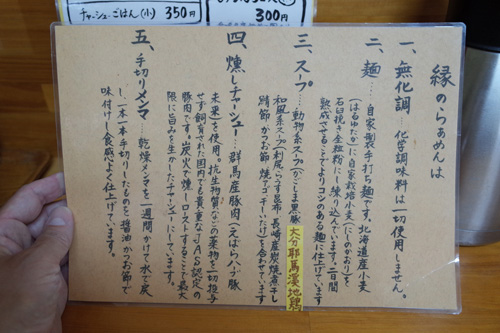 チャーシューごはん(小) 350円
300円
縁のらぁめんは
一、無化調…化学調味料は一切使用しません。
二、麺…自家製手打ち麺です。北海道産小麦
(はるゆたか)に自家栽培小麦(にしのかおり)を
石臼挽き全粒粉にし練り込んでいます。二日間
熟成させることでよりコシのある麺に仕上げています
三、スープ…動物系スープ(かごしま黒豚 大分耶馬溪地鶏)
和風系スープ(利尻らうす昆布 長崎産炭焼煮干し
鯖節 かつお節 焼アゴ しいたけ)を合わせています
四、燻しチャーシュー…群馬産豚肉(えばらハーブ豚
未来)を使用。抗生物質などの薬物を一切投与
せず飼育された国内でも貴重なJAS認定の
豚肉です。炭火で燻しローストすることで最大
限に旨みを生かしたチャーシューにしています。
五、手切りメンマ…乾燥メンマを一週間かけて水で戻
し、一本一本手切りしたものを醤油 かつお節で
味付けし食感よく仕上げています。